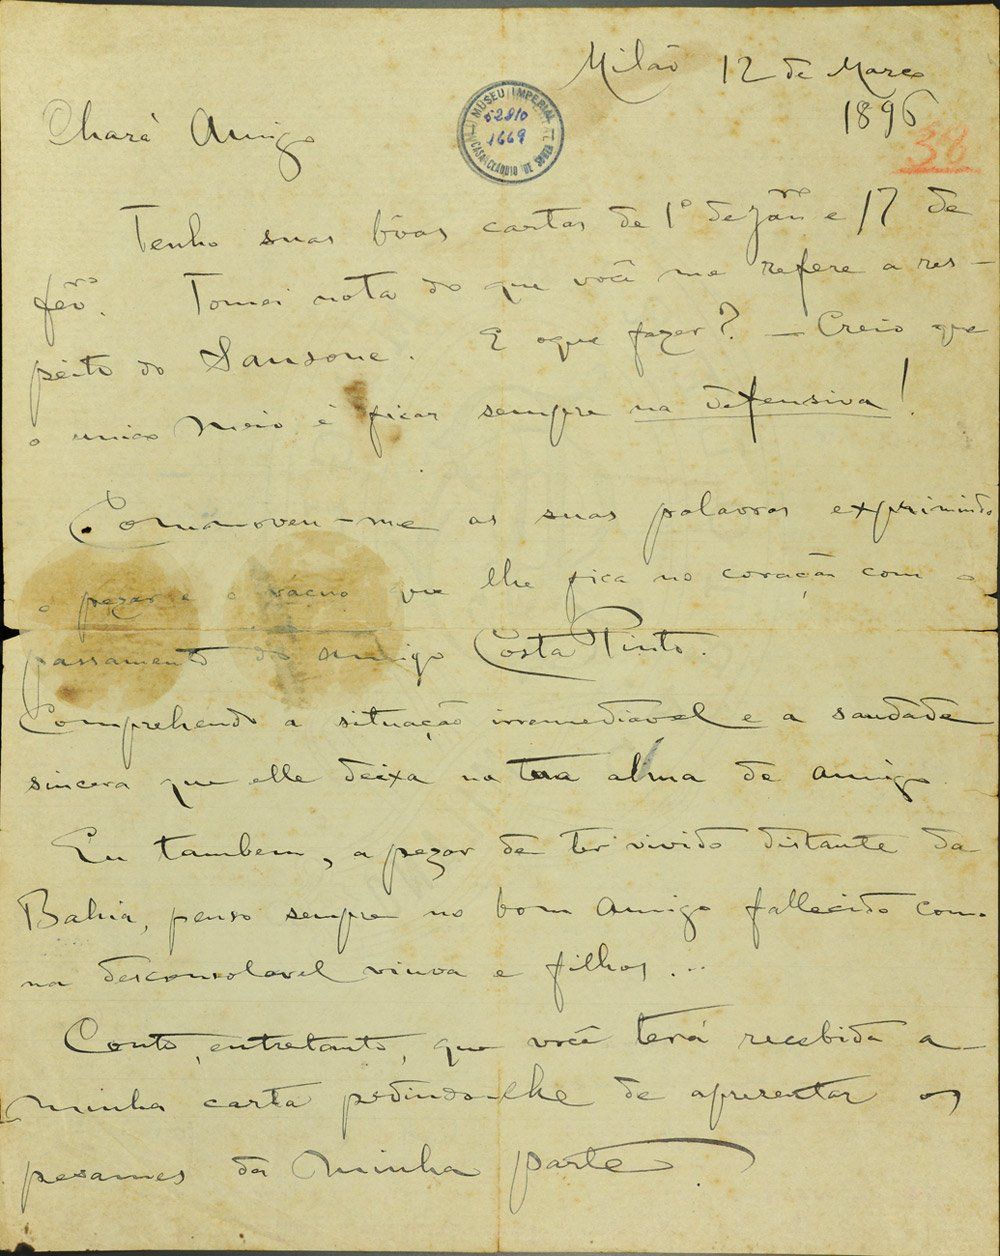 Milão 12 de Março
1896
38
MUSEU IMPERIAL
02810
1669
CASA CLAUDIO DE SOUZA
Chará Amigo
Tenho suas bôas cartas de 1º de Janro e 17 de
fevro. Tomei nota do que você me refere a res-
peito do Sansone. E oque fazer? — Creio que
o unico meio é ficar sempre na defensiva!
Commoveu-me as suas palavras exprimindo
o pezar e o vacuo que lhe fica no coração com o
passamento do amigo Costa Pinto.
Comprehendo a situação irremediavel e a saudade
sincera que elle deixa na tua alma de amigo.
Eu tambem, a pezar de ter vivido distante da
Bahia, penso sempre no bom Amigo fallecido como
na desconsolavel viuva e filhos...
Conto, entretanto, que você terá recebida a
minha carta pedindo-lhe de apresentar os
pesames da minha parte.